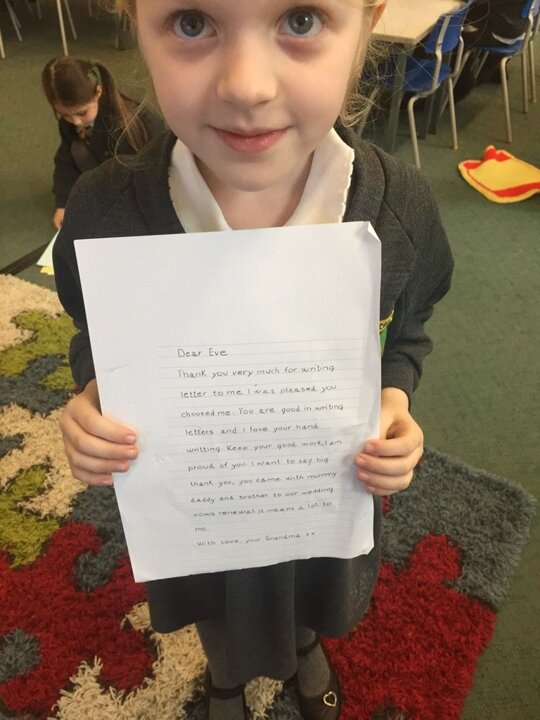 Dear Eve
Thank you very much for writing
letter to me I was pleased you
choosed me. You are good in writing
letters and I love your hand
writting. Keep your good work, I am
proud of you. I want to say big
thank you, you came with mummy
daddy and brother to our wedding
vows renewal it means a lot to
me.
With love, your Grandma xx